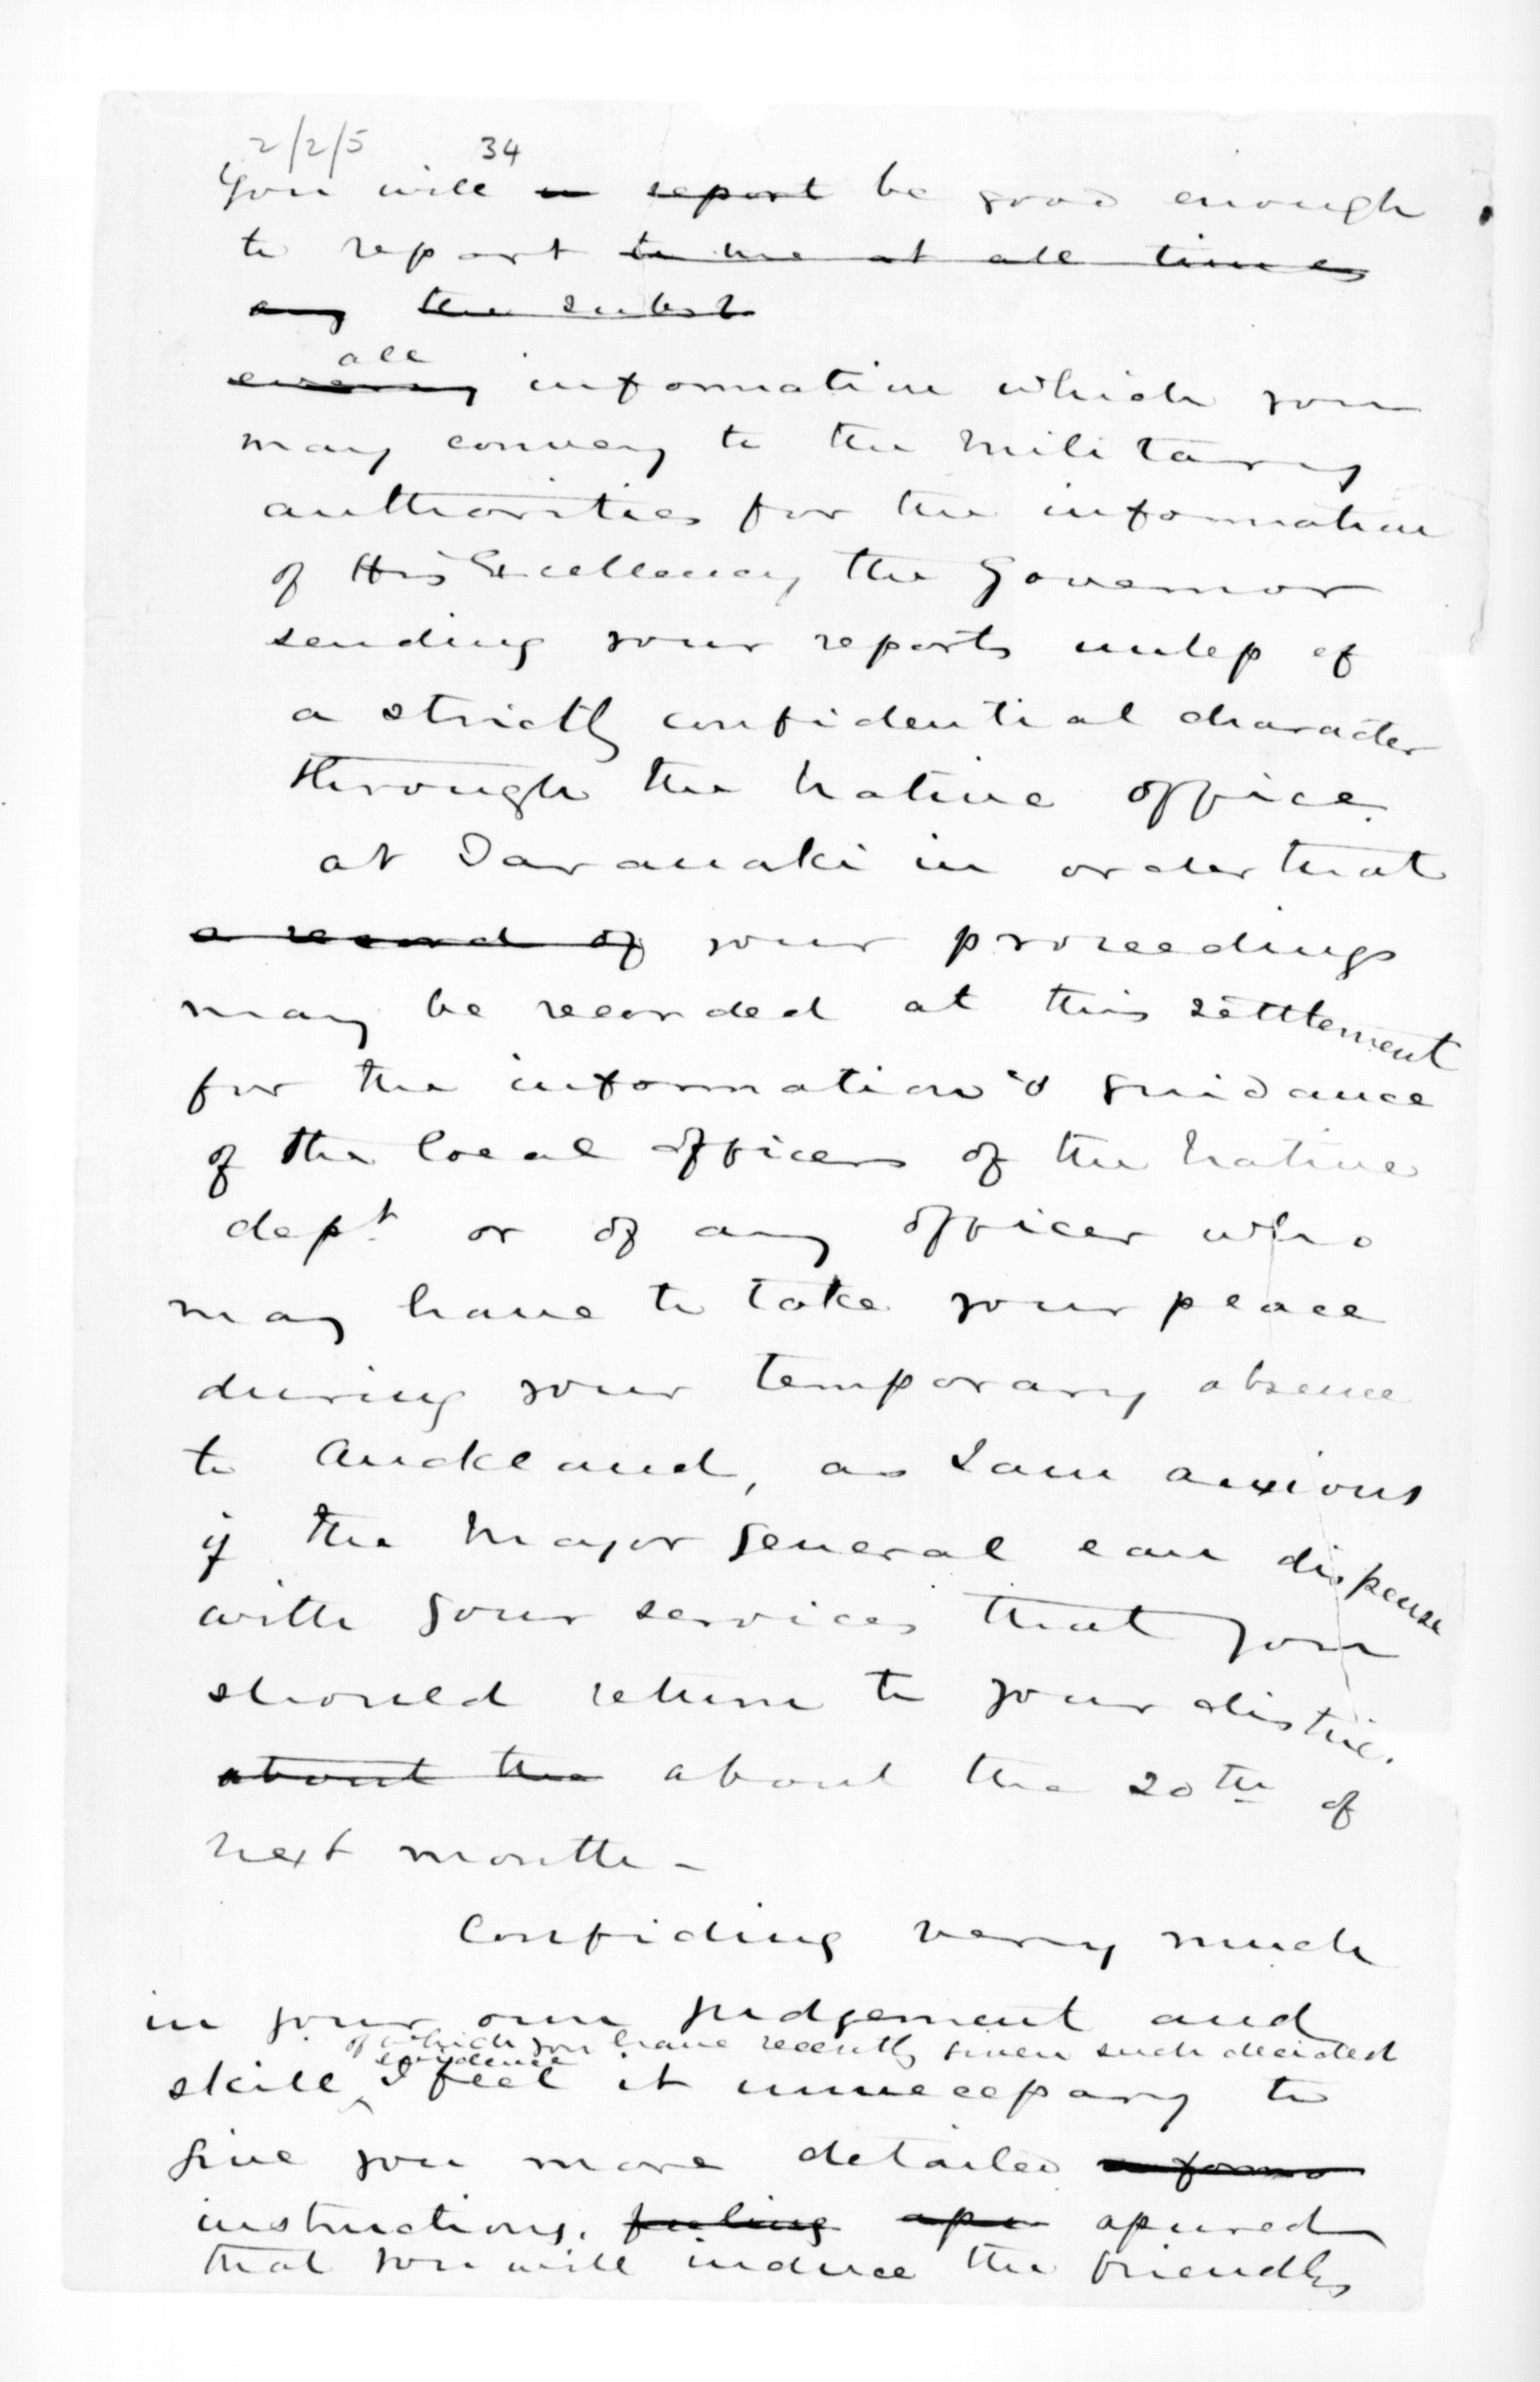 2/2/5 34
You will in report be good enough
to report to me at all times
any the subst
all
every information which you
may convey to the Military
authorities for the information
of His Excellency the Governor
sending your reports unless of
a strictly confidential character
through the Native office
at Taranaki in order that
a record of your proceedings
may be recorded at this settlement
for the information & guidance
of the local officers of the Native
dept. or of any officer who
may have to take your place
during your temporary absence
to Auckland, as I am anxious
if the Major General can dispense
with your services that you
should return to your distric.
about the about the 20th of
next month -
Confiding very much
in your own judgement and
of which you have recently given such decided
evidence
skill I feel it unnecessary to
give you more detailed informa
instructions. feeling assu assured
that you will induce the friendly